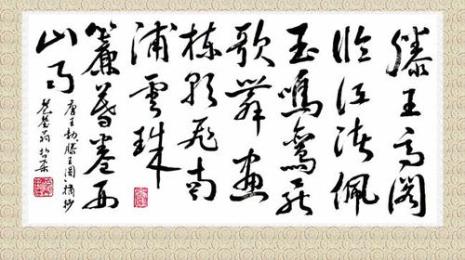 滕王高阁
临江渚佩
玉鸣鸾罢
歌舞画
栋朝飞南
浦雲珠
簾暮卷西
山雨
唐王勃滕王阁摘抄